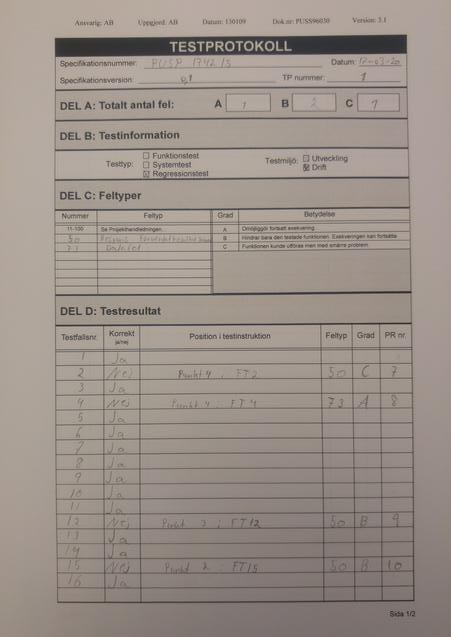 Ansvarig: AB Uppgjord: AB Datum: 130109 Dok.nr: PUSS96030 Version: 3.1
TESTPROTOKOLL
Specifikationsnummer: PUSP 1742 13 Datum: 17-03-20
Specifikationsversion: 0,1 TP nummer: 1
DEL A: Totalt antal fel: A 1 B 2 C 1
DEL B: Testinformation
Testtyp: Funktionstest Testmiljö: Utveckling
Systemtest Drift
Regressionstest
DEL C: Feltyper
Nummer Feltyp Grad Betydelse
11-100 Se Projekthandledningen. A Omöjliggör fortsatt exekvering.
50 B Hindrar bara den testade funktionen. Exekveringen kan fortsätta
73 C Funktionen kunde utföras men med smärre problem.
DEL D: Testresultat
Testfallsnr. Korrekt ja/nej Position i testinstruktion Feltyp Grad PR nr.
1 Ja
2 Nej Punkt 4 ; FT2 50 C 7
3 Ja
4 Nej Punkt 4 ; FT4 73 A 8
5 Ja
6 Ja
7 Ja
8 Ja
9 Ja
10 Ja
11 Ja
12 Nej Punkt 3 ; FT12 50 B 9
13 Ja
14 Ja
15 Nej Punkt 2 ; FT15 50 B 10
16 Ja
Sida 1/2